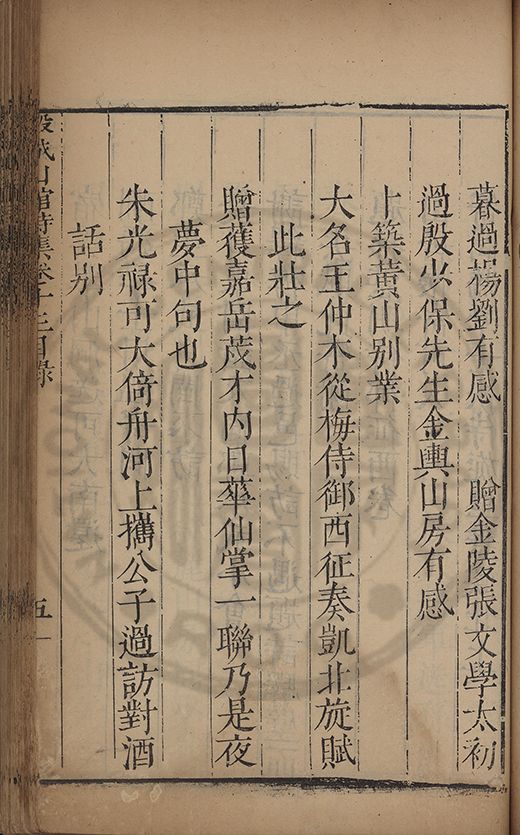 暮過楊劉有感　贈金陵張文學太初
過殷少保先生金輿山房有感
上築黃山别業
大名王仲木從梅侍御西征奏凱北旋賦
此壯之
贈獲嘉岳茂才内日華仙掌一聯乃是夜
夢中句也
朱光祿可大倚舟河上攜公子過訪對酒
話别
山館詩集卷十三目錄
五